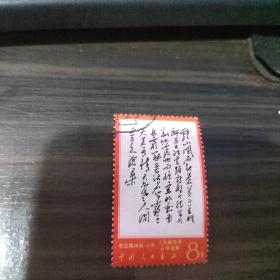 鍾山風雨起蒼黄百万雄
師过大江虎踞龍盤今勝昔
天翻地覆慨而慷宜將剩勇
追窮寇不可沽名學霸王
天若有情天亦老人間
正道是滄桑
毛主席诗词·七律 人民解放军
占领南京
中国人民邮政 8